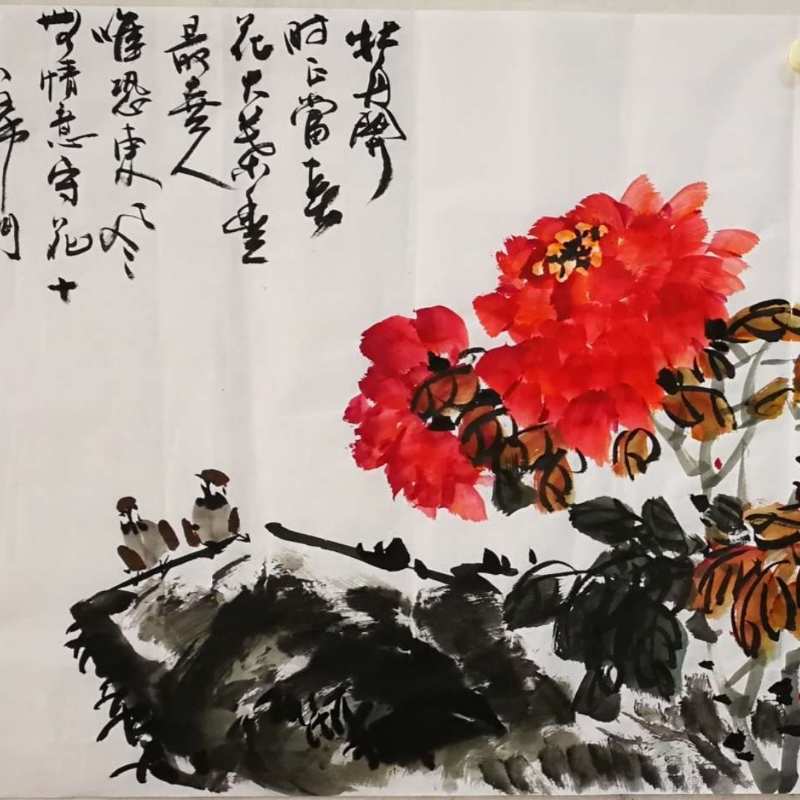 牡丹開
时正當春
花大葉豊
最喜人
唯恐東风
無情意守花十